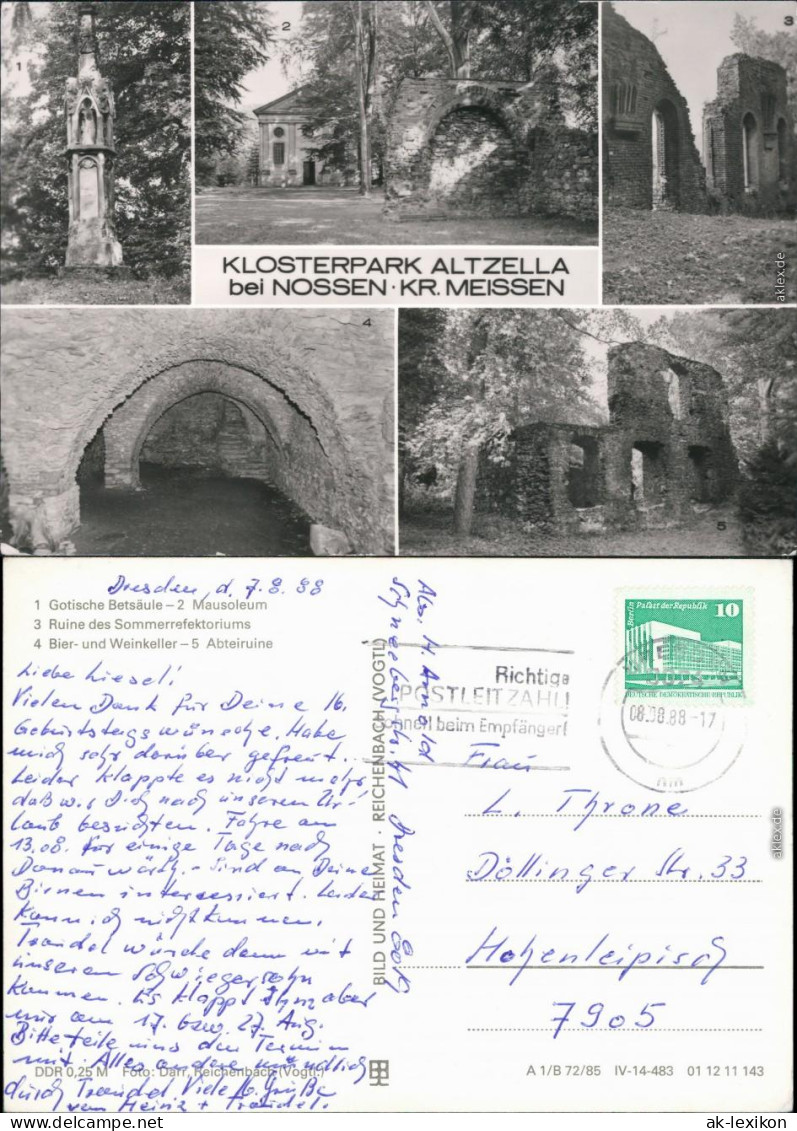 1
2
3
KLOSTERPARK ALTZELLA
bei NOSSEN · KR. MEISSEN
4
5
aklex.de
Dresden, d. 7.8.88
1 Gotische Betsäule – 2 Mausoleum
3 Ruine des Sommerrefektoriums
4 Bier- und Weinkeller – 5 Abteiruine
Liebe Liesel!
Vielen Dank für Deine lb.
Geburtstagswünsche. Habe
mich sehr darüber gefreut.
Leider klappte es nicht mehr,
daß wir Dich nach unserem Ur-
laub besuchten. Fahre am
13.08. für einige Tage nach
Donauwörth. – Sind an Deine
Birnen interessiert. Leider
kann ich nicht kommen.
Traudel würde dann mit
unserem Schwiegersohn
kommen. Es klappt Ihm aber
nur am 17. bzw. 27. Aug.
Bitte teile uns den Termin
mit. Alles andere mündlich
durch Traudel. Viele lb. Grüße
von Heinz + Traudel.
DDR 0,25 M Foto: Darr, Reichenbach (Vogtl.)
BILD UND HEIMAT · REICHENBACH (VOGTL)
Abs. H. Arnold
Dresden
Richtige
POSTLEITZAHL!
schnell beim Empfänger!
08.08.88-17
Berlin Palast der Republik 10
DEUTSCHE DEMOKRATISCHE REPUBLIK
Frau
L. Throne
Döllinger Str. 33
Hohenleipisch
7905
A 1/B 72/85 IV-14-483 01 12 11 143
aklex.de
ak-lexikon
www.delcampe.net